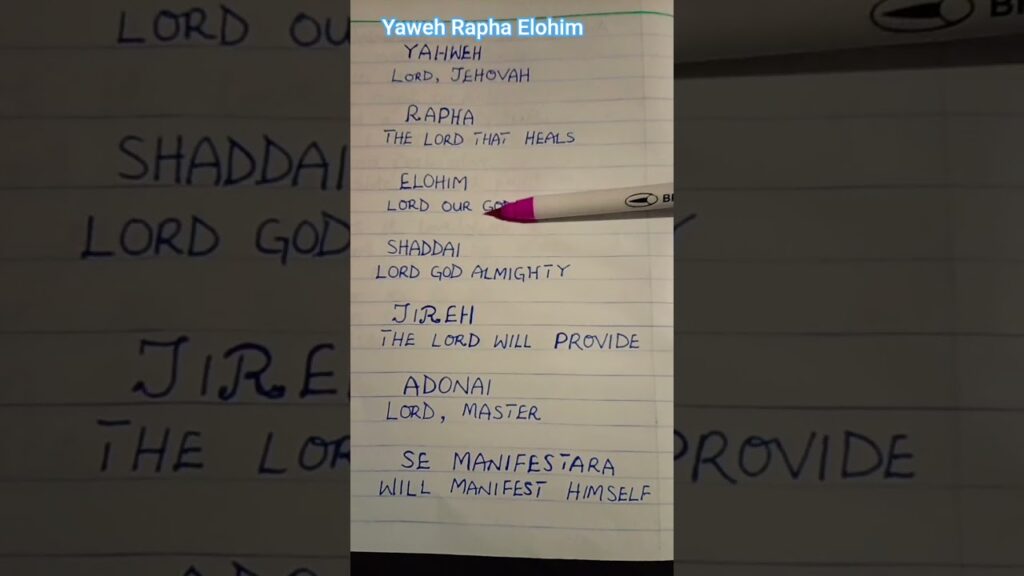 Yaweh Rapha Elohim
YAHWEH
LORD, JEHOVAH
RAPHA
THE LORD THAT HEALS
ELOHIM
LORD OUR GOD
SHADDAI
LORD GOD ALMIGHTY
JIREH
THE LORD WILL PROVIDE
ADONAI
LORD, MASTER
SE MANIFESTARA
WILL MANIFEST HIMSELF